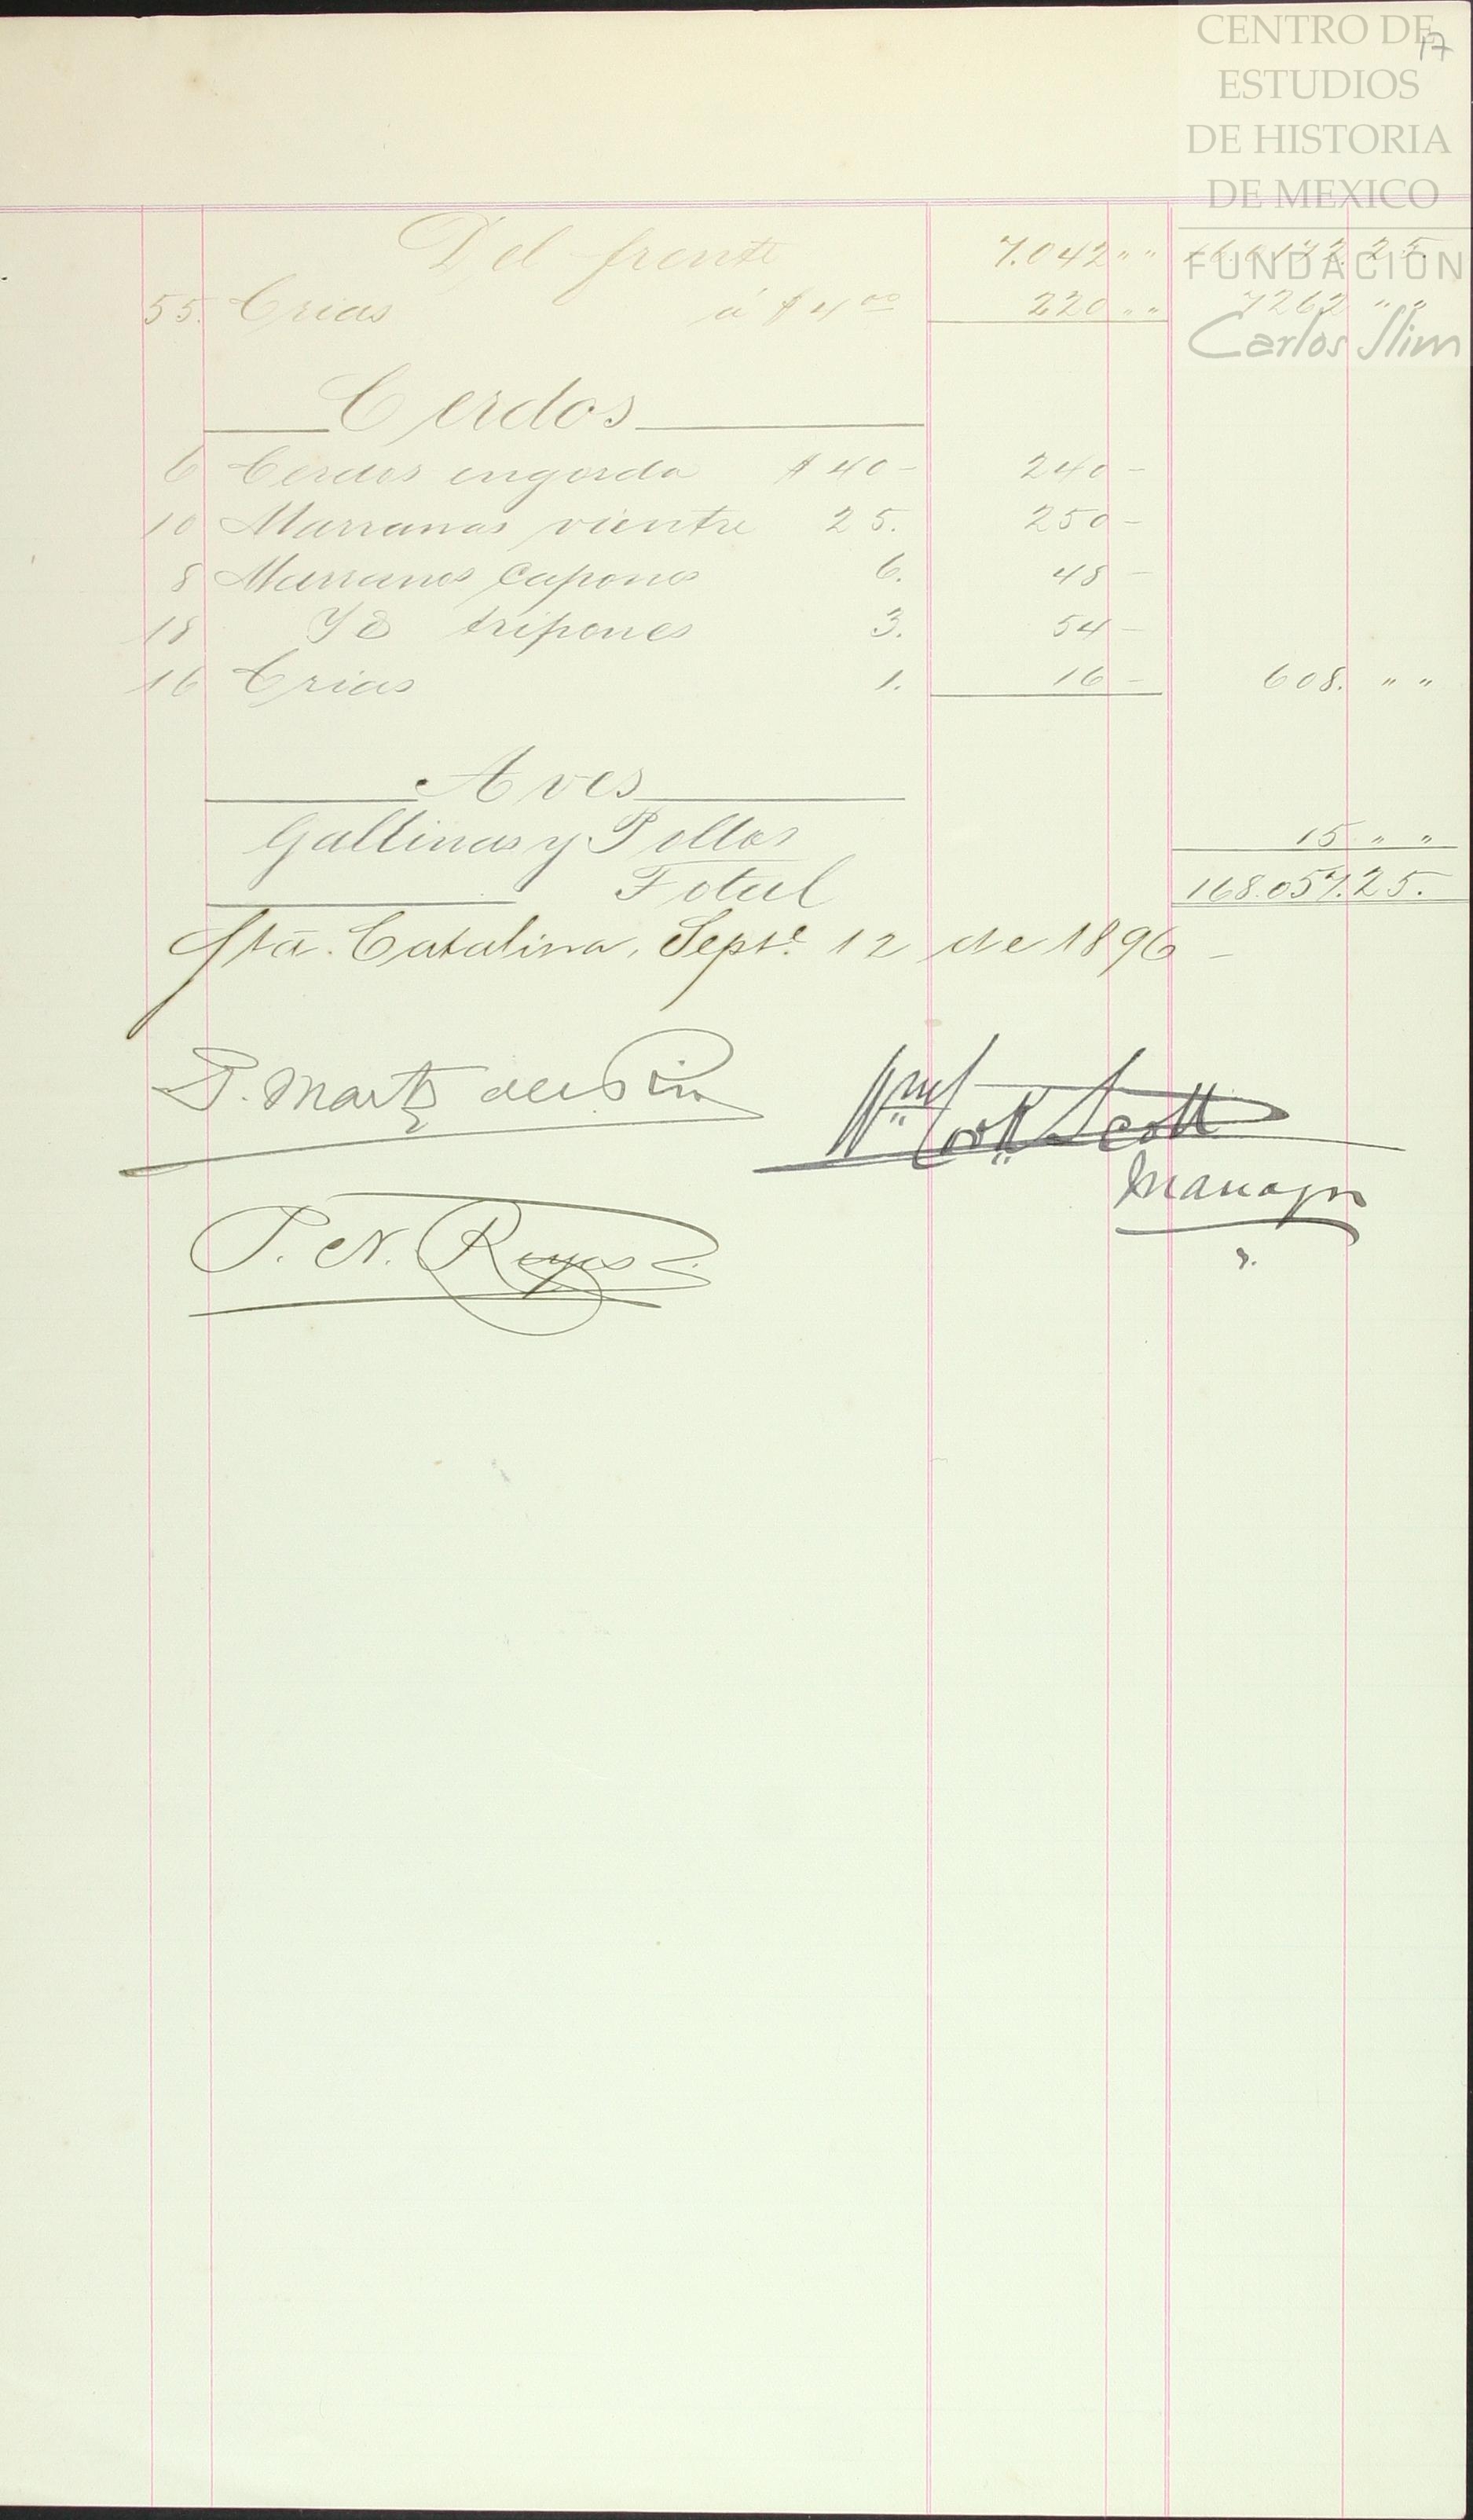 CENTRO DE
ESTUDIOS
DE HISTORIA
DE MEXICO
FUNDACIÓN
Carlos Slim
17
Del frente 7.042 " " 160.172. 25.
55. Crias á $ 4 00 220 " " 7262 " "
Cerdos
6 Cerdos engorda $ 40 - 240 -
10 Marranas vientre 25. 250 -
8 Marranos capones 6. 48 -
18 Yd tripones 3. 54 -
16 Crias 1. 16 - 608. " "
Aves
Gallinas y Pollos 15 " "
Total 168.057.25.
Sta. Catalina, Septe. 12 de 1896 -
P. Martz del Rio
Wm Cook Scott
Manager
P. N. Reyes